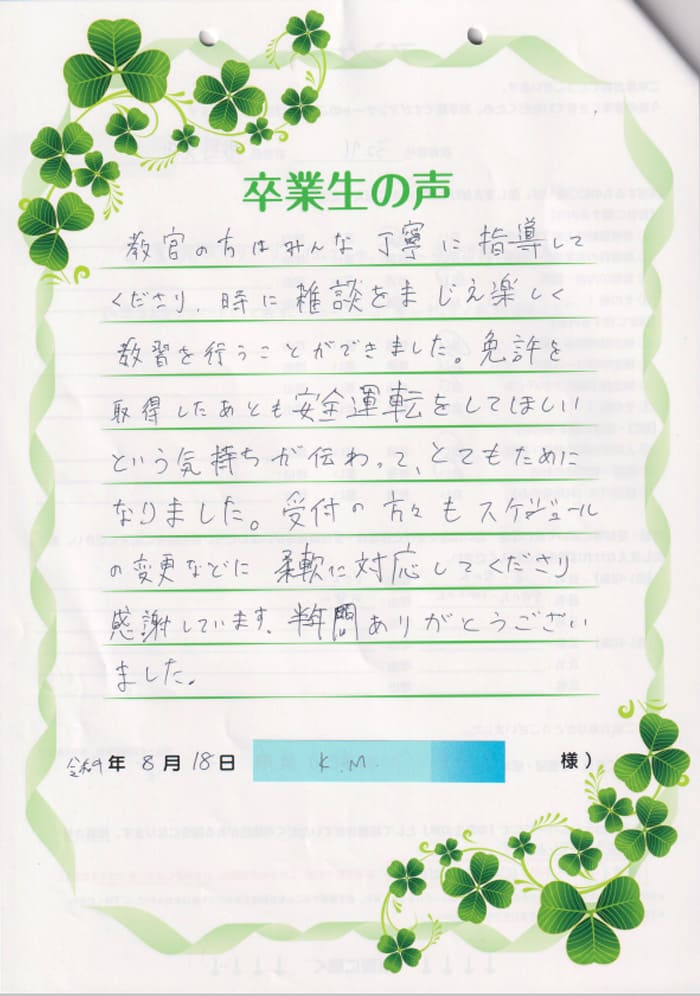 卒業生の声
教官の方はみんな丁寧に指導して
くださり、時に雑談をまじえ楽しく
教習を行うことができました。免許を
取得したあとも安全運転をしてほしい
という気持ちが伝わって、とてもために
なりました。受付の方々もスケジュール
の変更などに柔軟に対応してくださり
感謝しています。半年間ありがとうござい
ました。
令和 年 8月18日 K.M. 様)